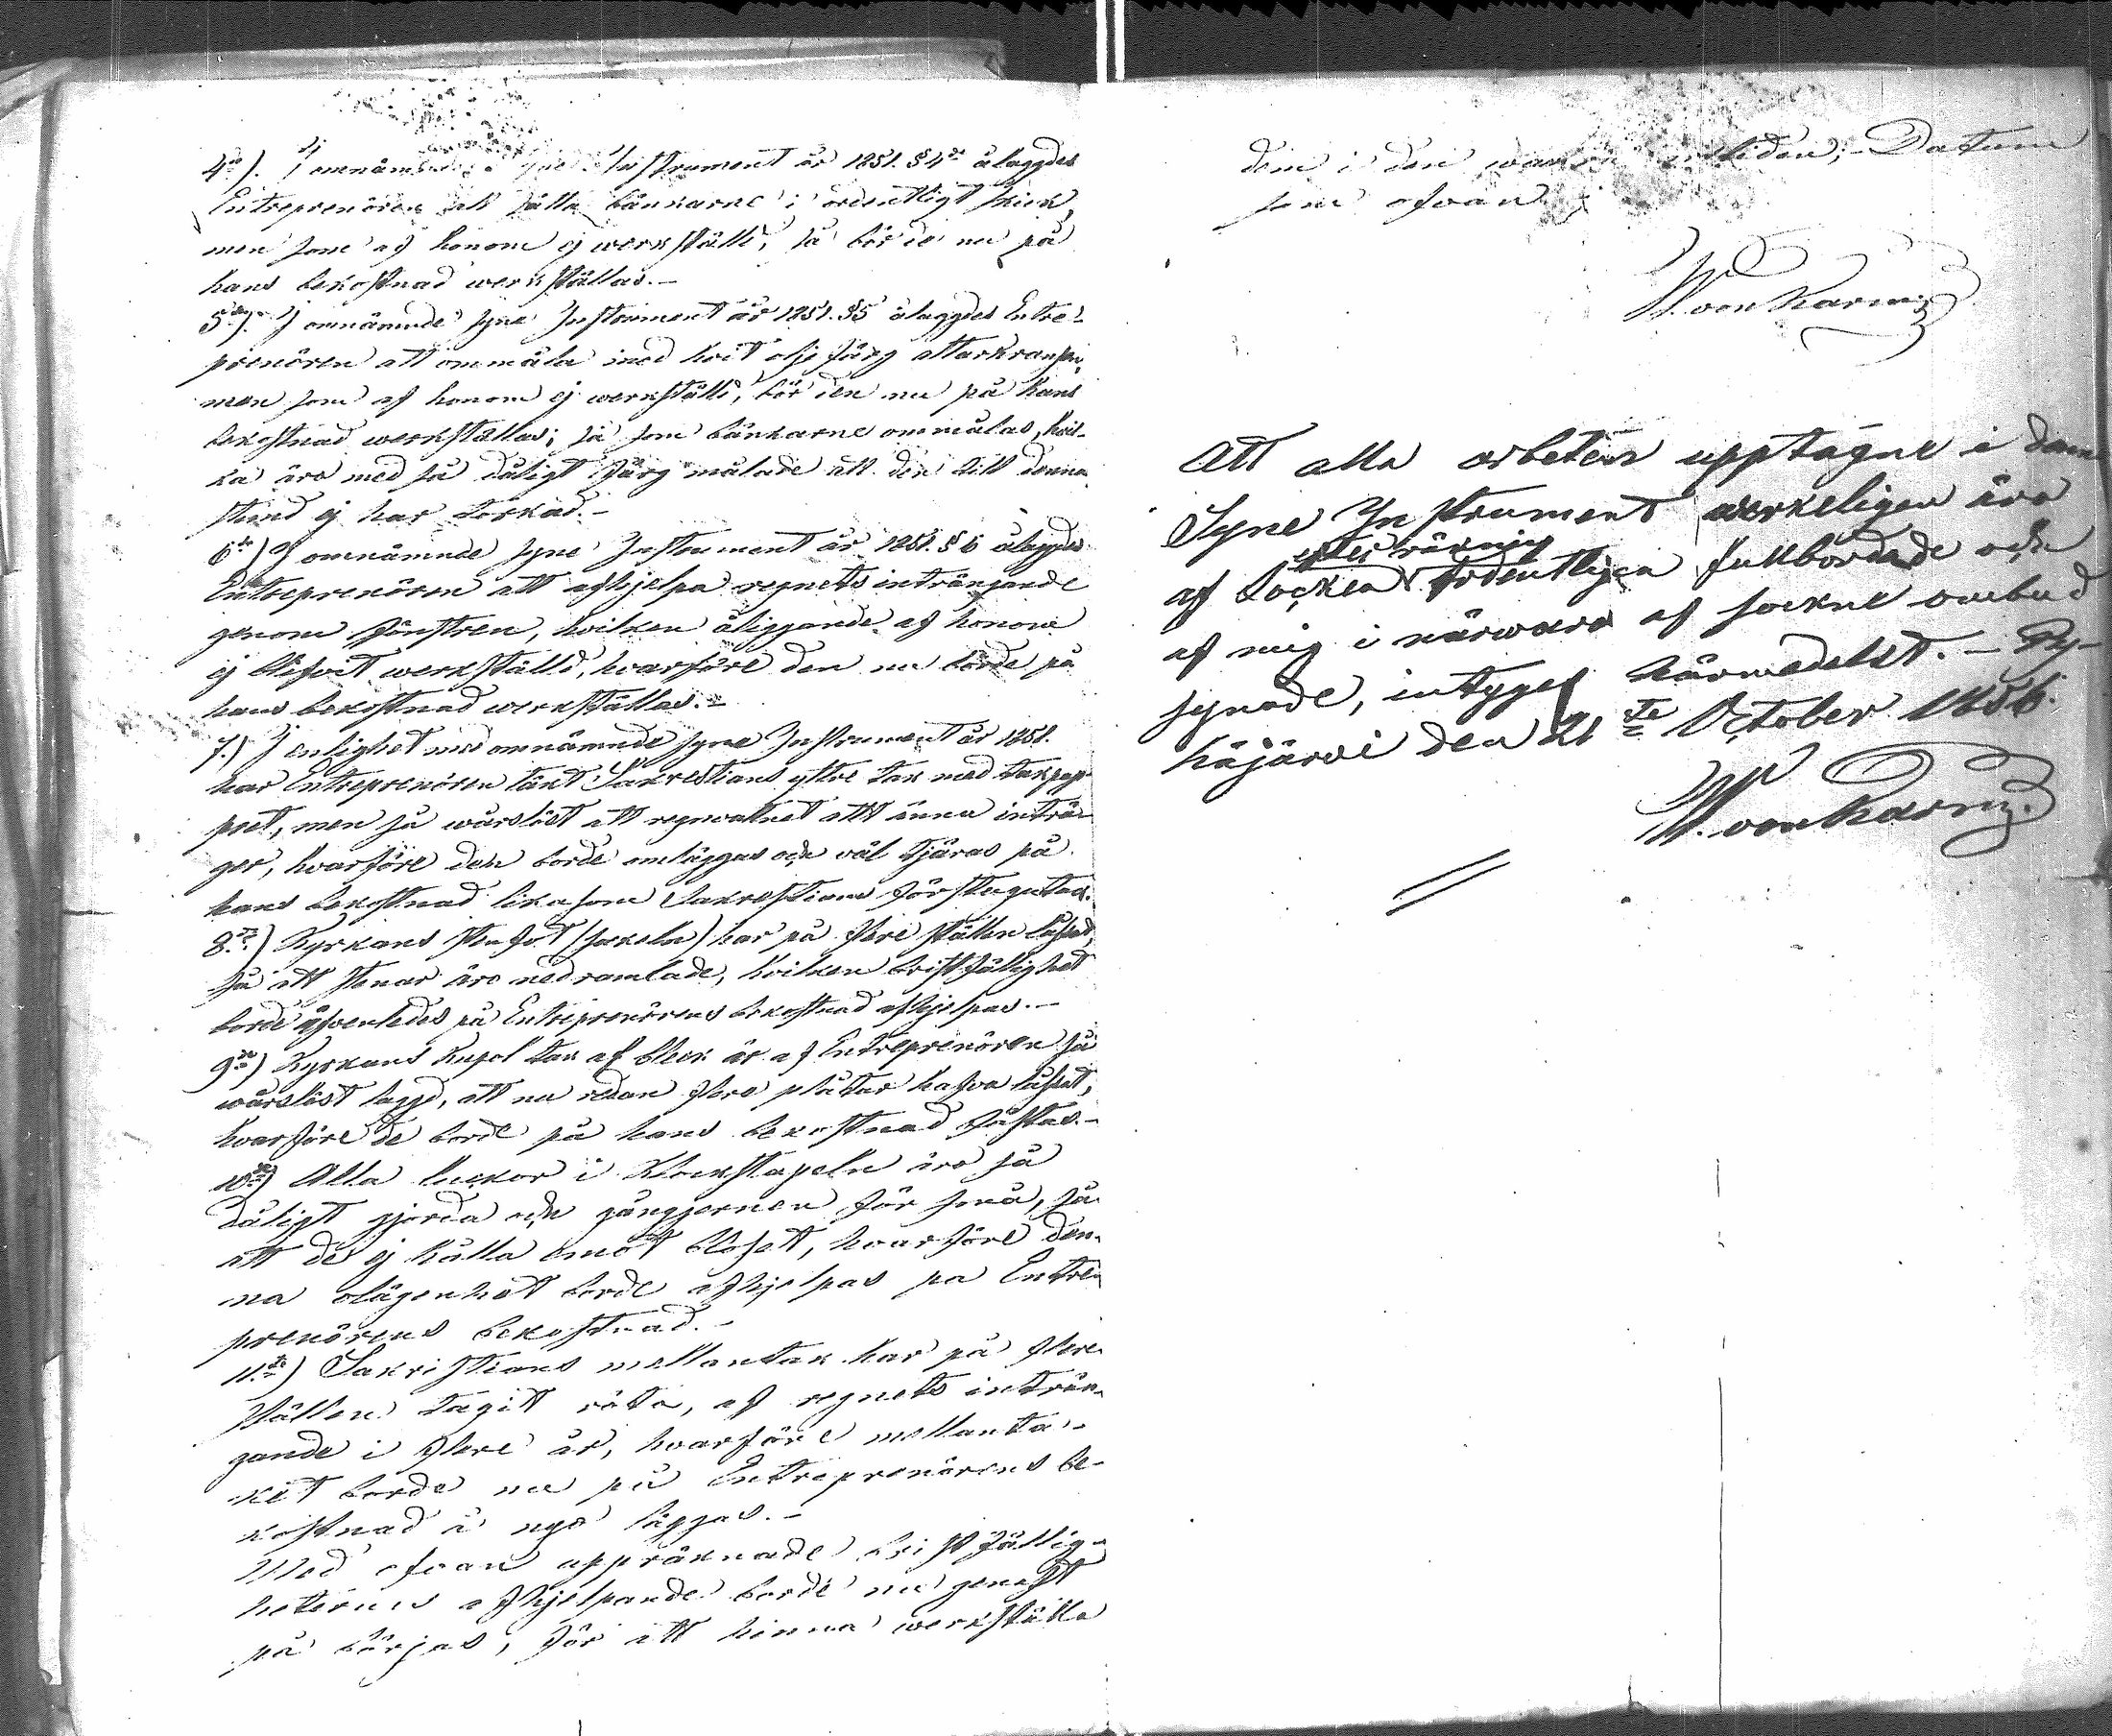 4de). I omnämnde Syne Instrument år 1851. § 4de ålaggdes
Entreprenören att sätta bänkarne i ordentligt skick,
men som af honom ej werkställt, så bör de nu på
hans bekostnad werkställas.-
5te). I omnämnde Syne Instrument år 1851. §5 ålaggdes Entre-
prenören att ommåla med hvit olje färg altarkransen,
men som af honom ej werkställt, bör den nu på hans
bekostnad werkställas; så som bänkarne ommålas, hvil-
ka äro med så dåligt färg målade att den till denna
stund ej har torkad.-
6te) I omnämnde Syne Instrument år 1851. § 6 ålaggdes
Entreprenören att afhjelpa regnets inträngande
genom fönstren, hvilken åliggande af honom
ej blifvit werkställd, hvarföre den nu borde på
hans bekostnad werkställas.-
7.) I enlighet med omnämnde Syne Instrument år 1851.
har Entreprenören täkt Sakrestians yttre tak med takpap-
pret, men så wårslöst att regnvattnet ännu inträn-
ger, hvarföre den borde omläggas och väl tjäras på
hans bekostnad likasom Sakrestians förstugutak.
8de) Kyrkans stenfot (sockeln) har på flere ställen lossat,
så att stenar äro nedramlade, hvilken bristfällighet
borde äfvenledes på Entreprenörens bekostnad afhjelpas.-
9de) Kyrkans Kupol tak af bleck är af Entreprenören så
wårslöst laggd, att nu redan flere plåtar hafva lossat,
hvarföre de borde på hans bekostnad fästas.-
10de) Alla luckor i Klockstapeln äro så
dåligt gjorda och gångjernen för små, så
att de ej hålla emot blåset, hvarföre den-
na olägenhet borde afhjelpas på Entre-
prenörens bekostnad.-
11te) Sakristians mellantak har på flere
ställen tagit röta, af regnets inträn-
gande i flere år, hvarföre mellanta-
ket borde nu på Entreprenörens be-
kostnad å nyo läggas.-
Med ofvan uppräknade bristfällig-
heternes afhjelpande borde nu genast
på börjas, för att hinna werkställa
dem i den warma årstiden; - Datum
som ofvan.
W. von Karm
Att alla arbeten upptagne i denna
Syne Instrument werkeligen äro
efter räkning
af Socken ordentligen fullbordade och
af mig i närwaro af sockne ombud
synade, intygas härmedelst. - Py-
häjärvi den 21te October 1856.
W. von Karm.